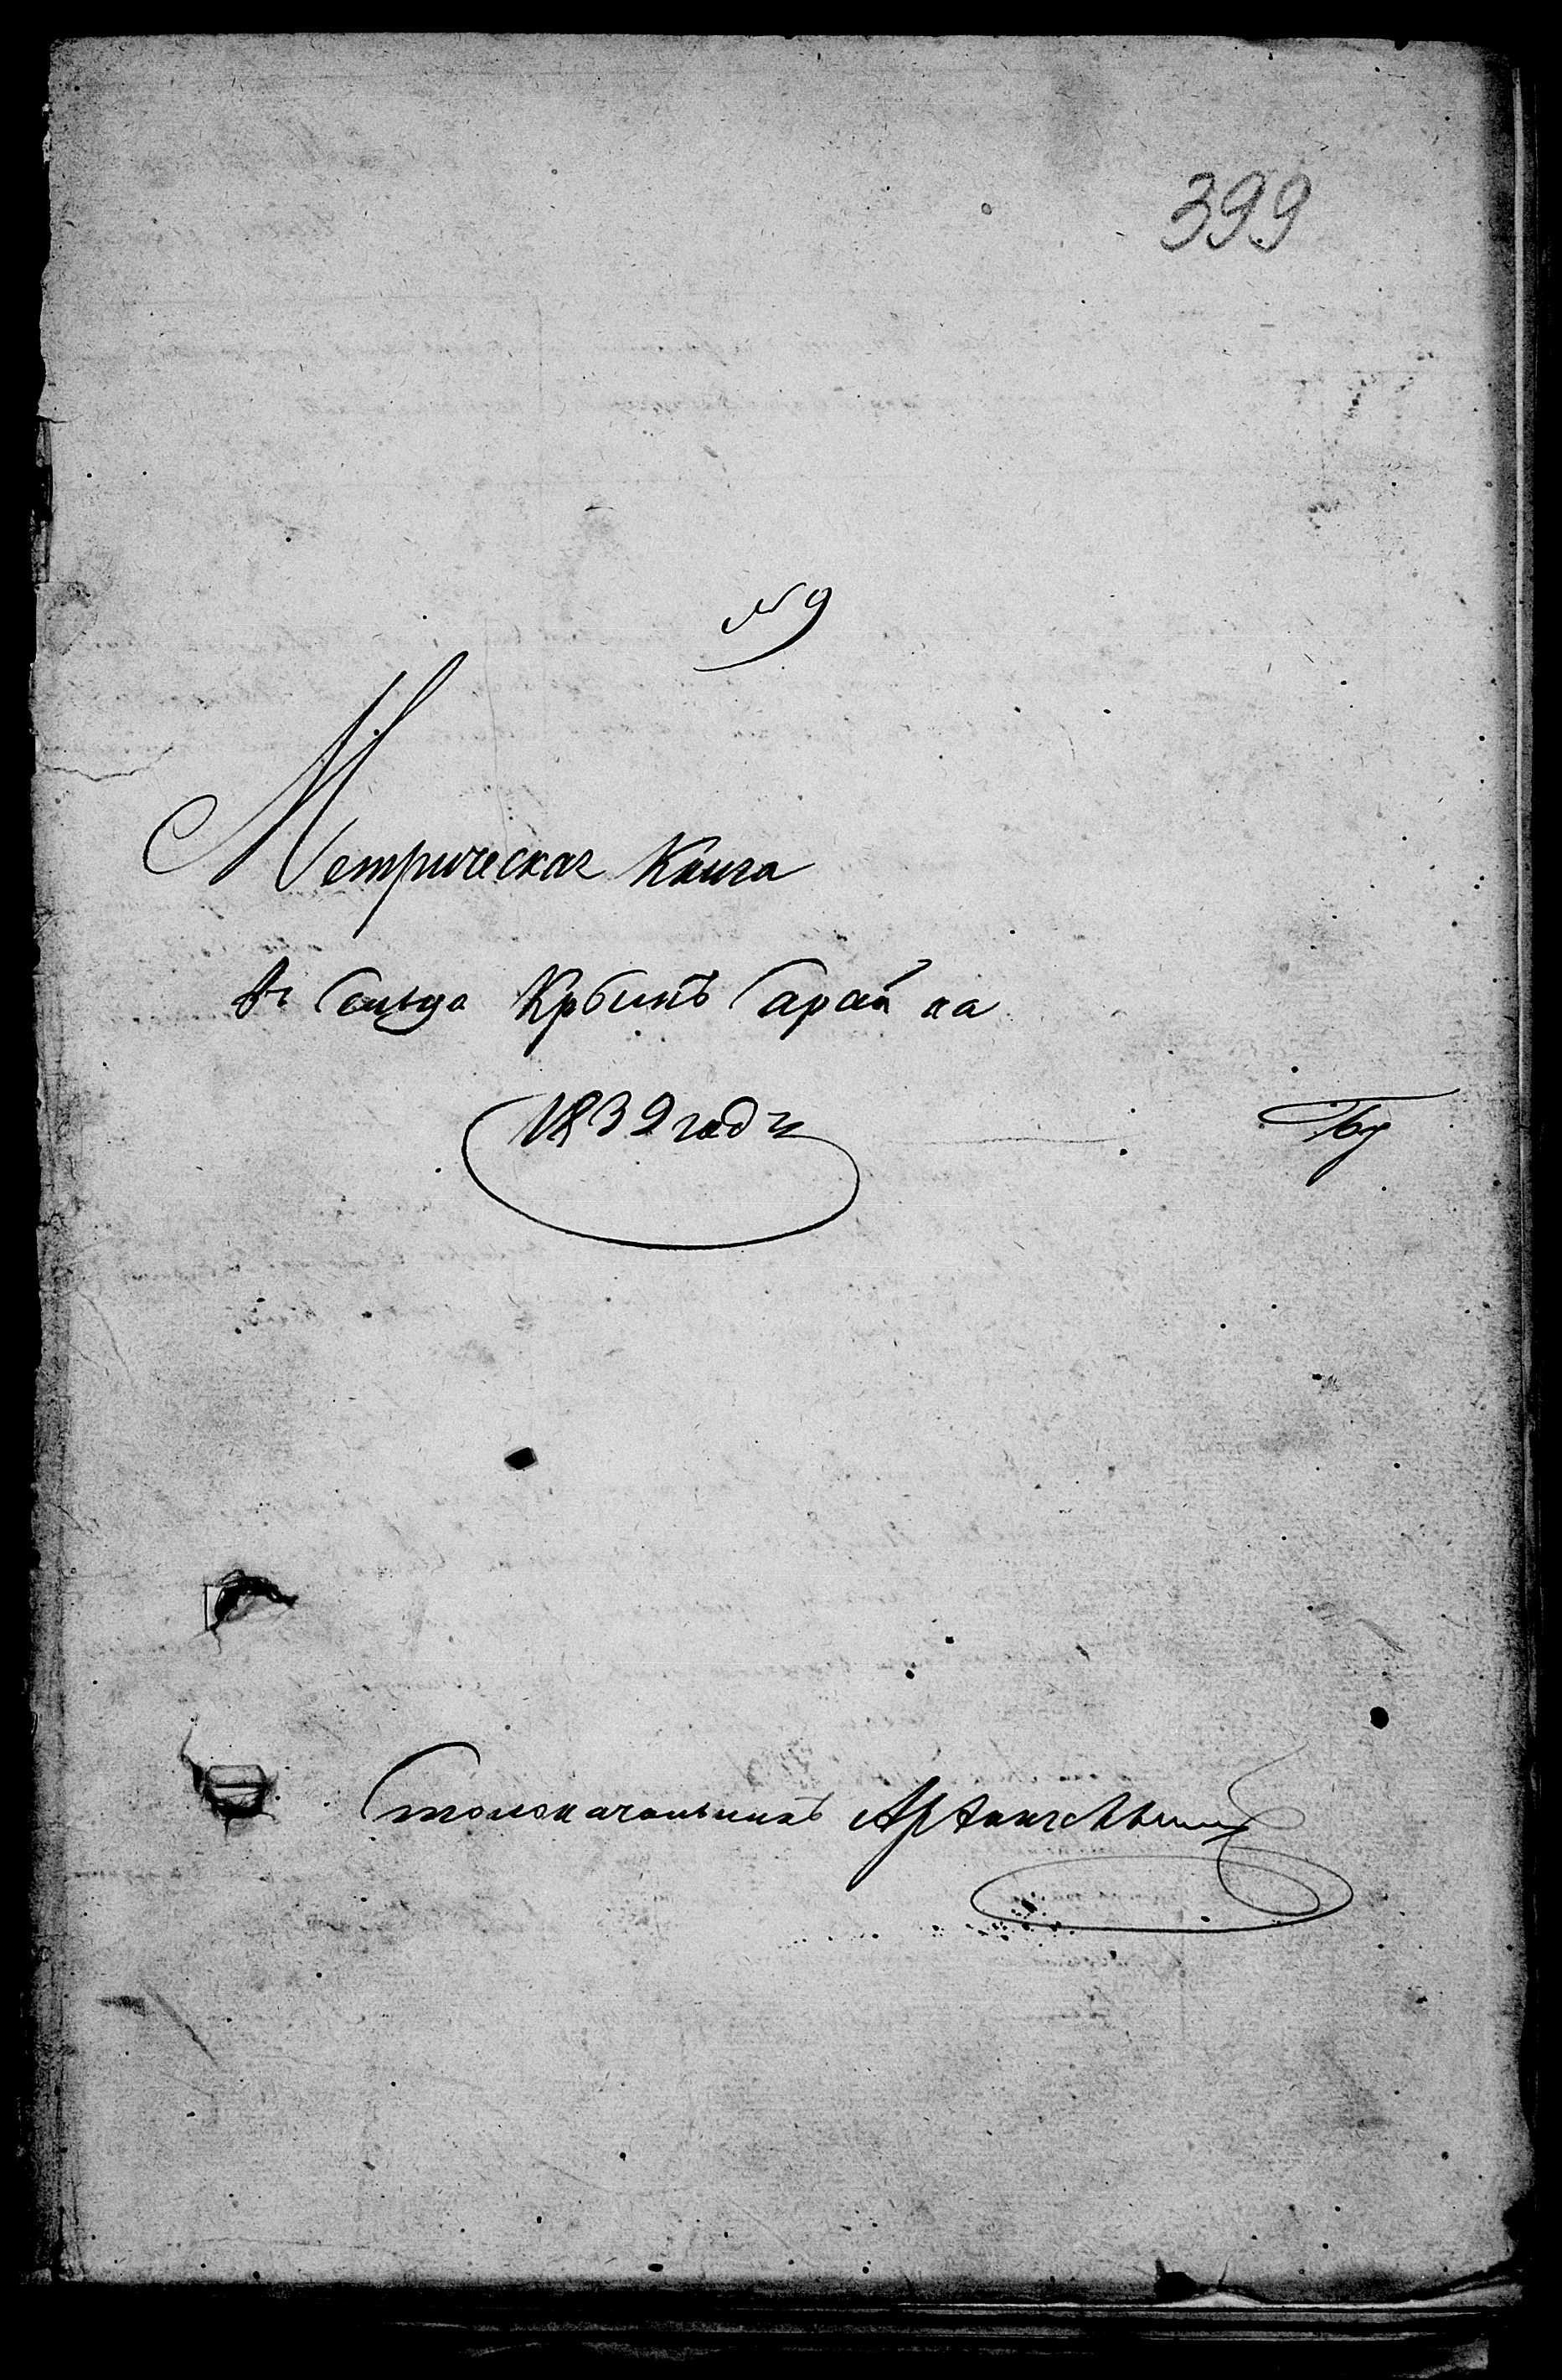 399
№ 9
Метрическая Книга
въ Сельда Крбикъ Сарай на
1839 годъ
Столоначальникъ